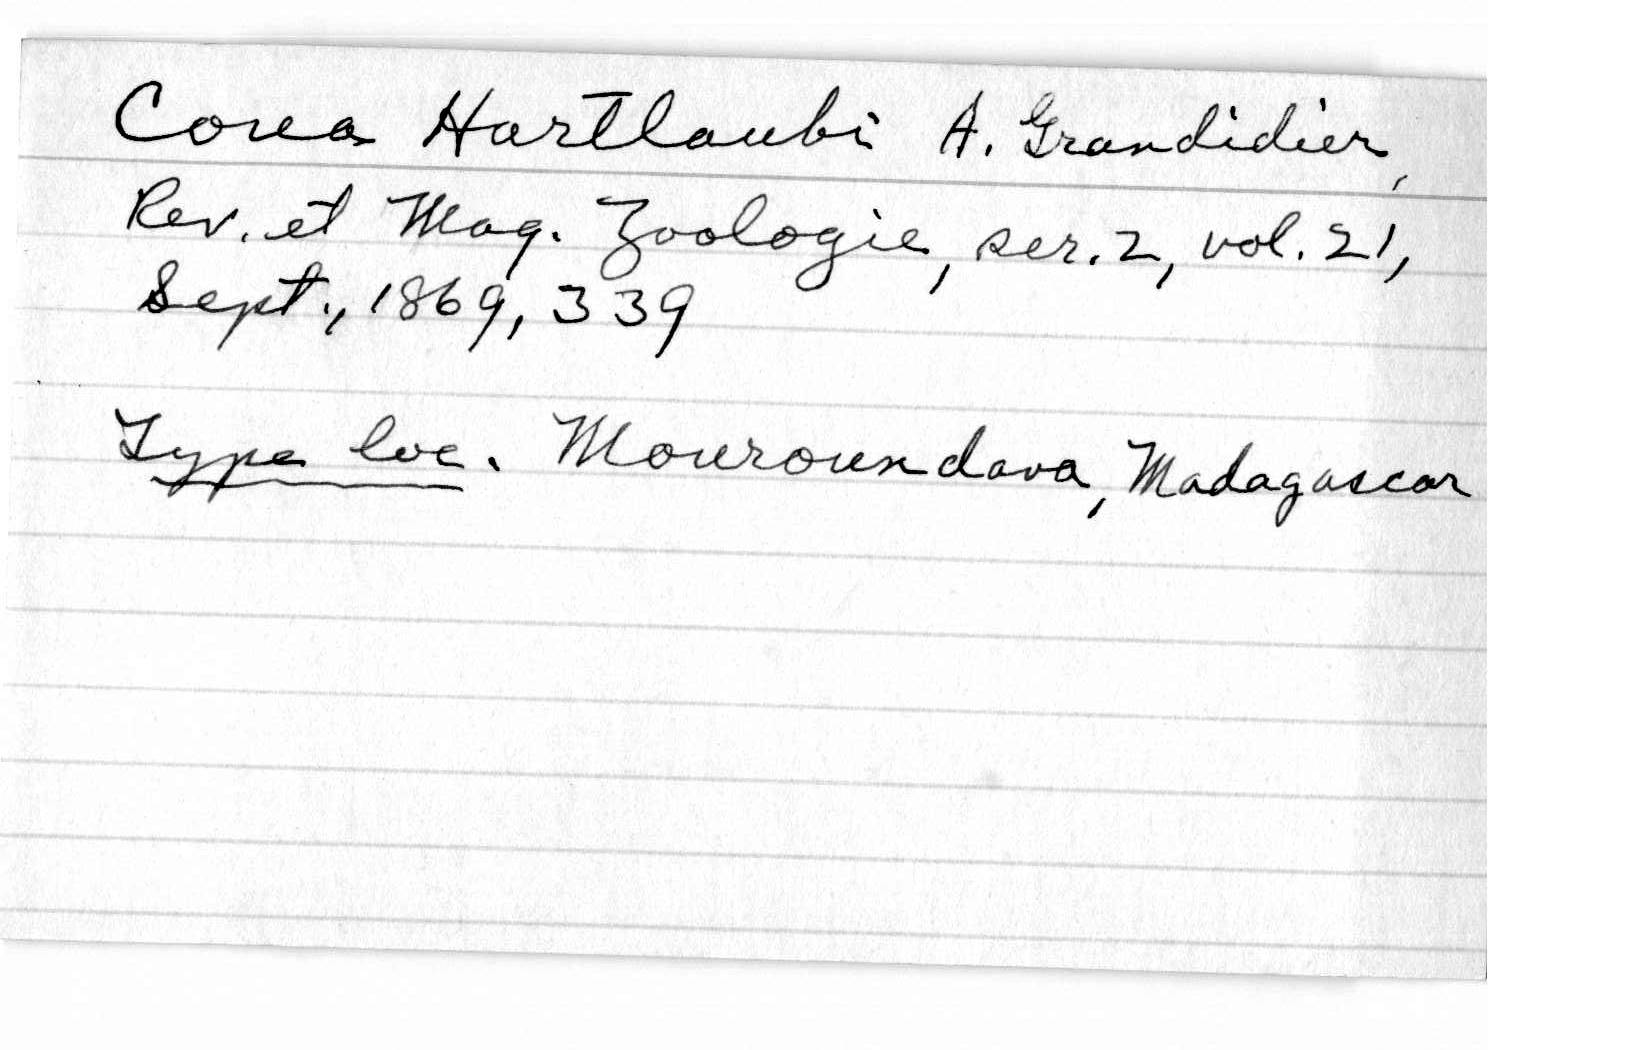 Coua Hartlaubi A. Grandidier,
Rev. et Mag. Zoologie, ser. 2, vol. 21,
Sept., 1869, 339
Type loc. Mouroundava, Madagascar